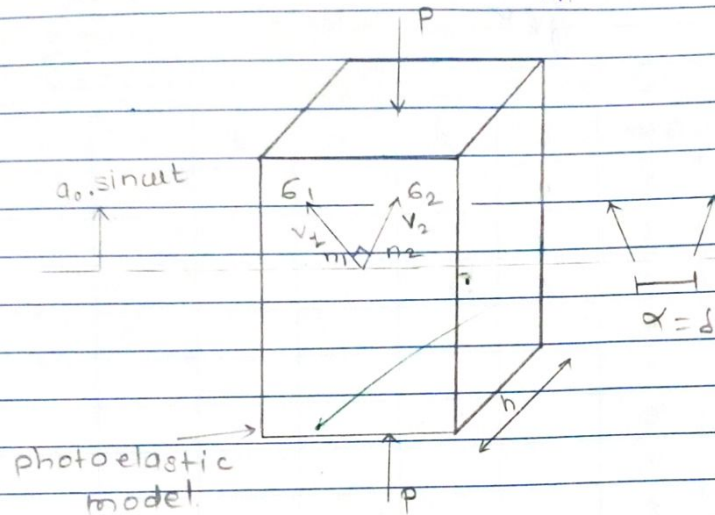 P
a₀.sinωt
σ₁ σ₂
v₁ v₂
n₁ n₂
α = δ
h
photoelastic
model.
P